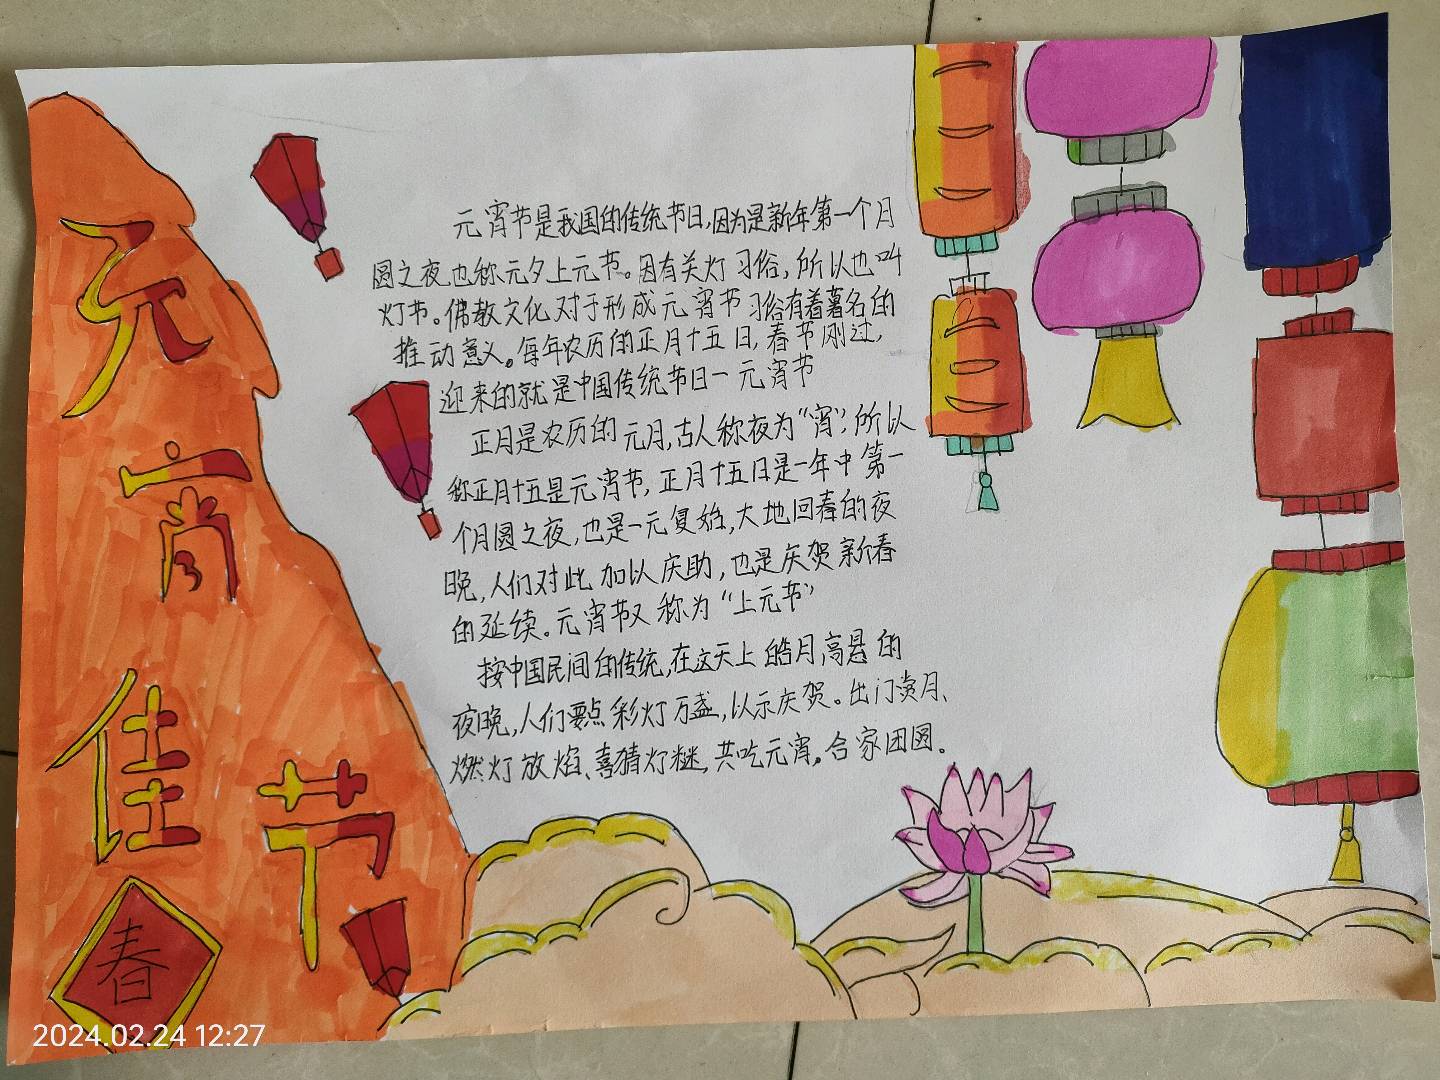 元
宵
佳
节
春
元宵节是我国的传统节日,因为是新年第一个月
圆之夜也称元夕上元节。因有关灯习俗,所以也叫
灯节。佛教文化对于形成元宵节习俗有着著名的
推动意义。每年农历的正月十五日,春节刚过,
迎来的就是中国传统节日一元宵节
正月是农历的元月,古人称夜为“宵”,所以
称正月十五是元宵节,正月十五日是一年中第一
个月圆之夜,也是一元复始,大地回春的夜
晚,人们对此加以庆助,也是庆贺新春
的延续。元宵节又称为“上元节”
按中国民间的传统,在这天上皓月高悬的
夜晚,人们要点彩灯万盏,以示庆贺。出门赏月、
燃灯放焰、喜猜灯谜,共吃元宵。合家团圆。
2024.02.24 12:27